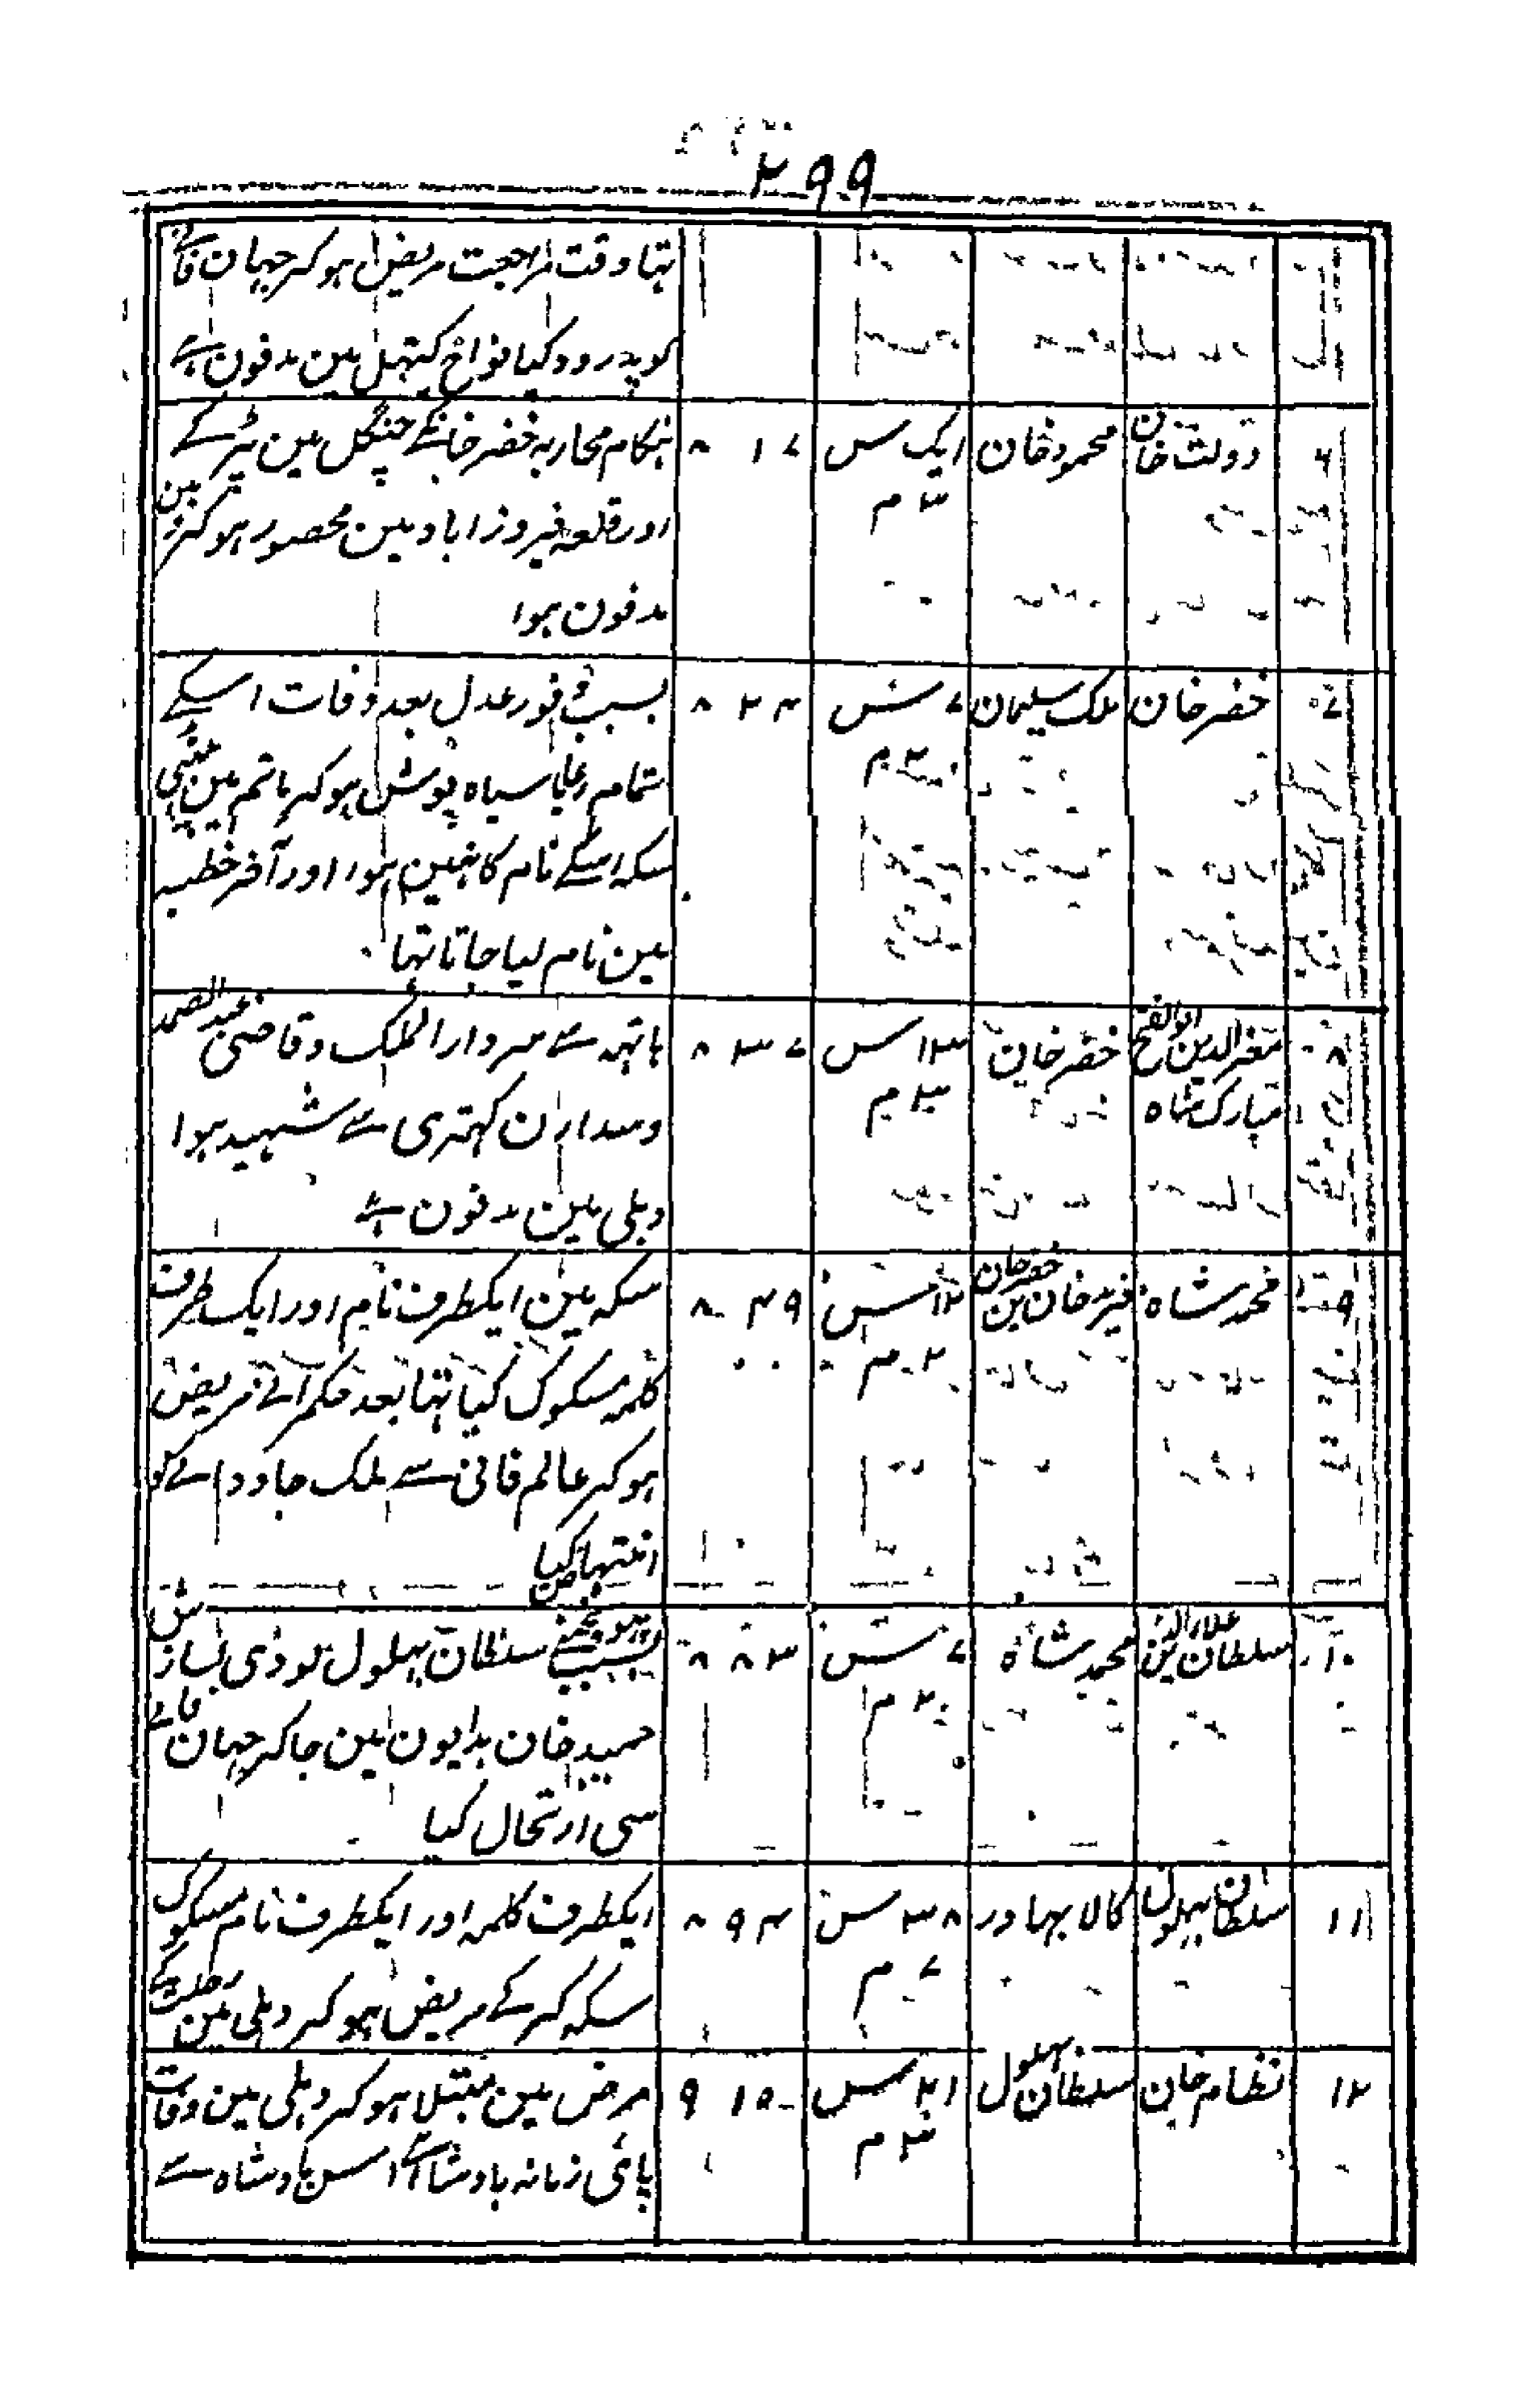 ۲۹۹
تہا وقت مراجعت مریض ہوکر جہان فانے
کو پدرود کیا نواح کیتہل مین مدفون ہے
۶ دولت خان محمود خان ایک س ۳ م ۸۱۷ ہنگام محاربہ خضر خانکے جنگل مین
اور قلعہ فیروز اباد مین محصور ہوکر
مدفون ہوا
۷ خضر خان ملک سلیمان ۷ س ۳ م ۸۲۴ بسبب وفور عدل بعد وفات اسکے
تمام رعایا سیاہ پوش ہوکر ماتم مین
سکہ اسکے نام کا نہین ہوا اور آخر خطبہ
مین نام لیا جاتا تہا
۸ معز الدین ابو الفتح مبارک شاہ خضر خان ۱۳ س ۳ م ۸۳۷ ہاتہہ سے سردار الملک و قاضی عبد الصمد
و سداران کہتری سے شہید ہوا
دہلی مین مدفون ہے
۹ محمد شاہ فرید خان بن خضر خان ۱۲ س ۲ م ۸۴۹ سکہ مین ایکطرف نام اور ایک طرف
کلمہ مسکوک کیا تہا بعد حکمرانے مریض
ہوکر عالم فانی سے ملک جاودانے کو
انتہاض کیا
۱۰ سلطان علاء الدین محمد شاہ ۷ س ۲ م ۸۸۳ بسبب سلطان بہلول لودی بسازش
حمید خان بدایون مین جاکر جہان فانے
سی ارتحال کیا
۱۱ سلطان بہلول کالا بہادر ۳۸ س ۷ م ۸۹۴ ایکطرف کلمہ اور ایکطرف نام مسکوک
سکہ کرکے مریض ہوکر دہلی مین رحلت کے
۱۲ نظام خان سلطان بہلول ۲۱ س ۳ م ۹۱۵ مرض مین مبتلا ہوکر دہلی مین وفات
پائی زمانہ بادشاہی اس بادشاہ سے